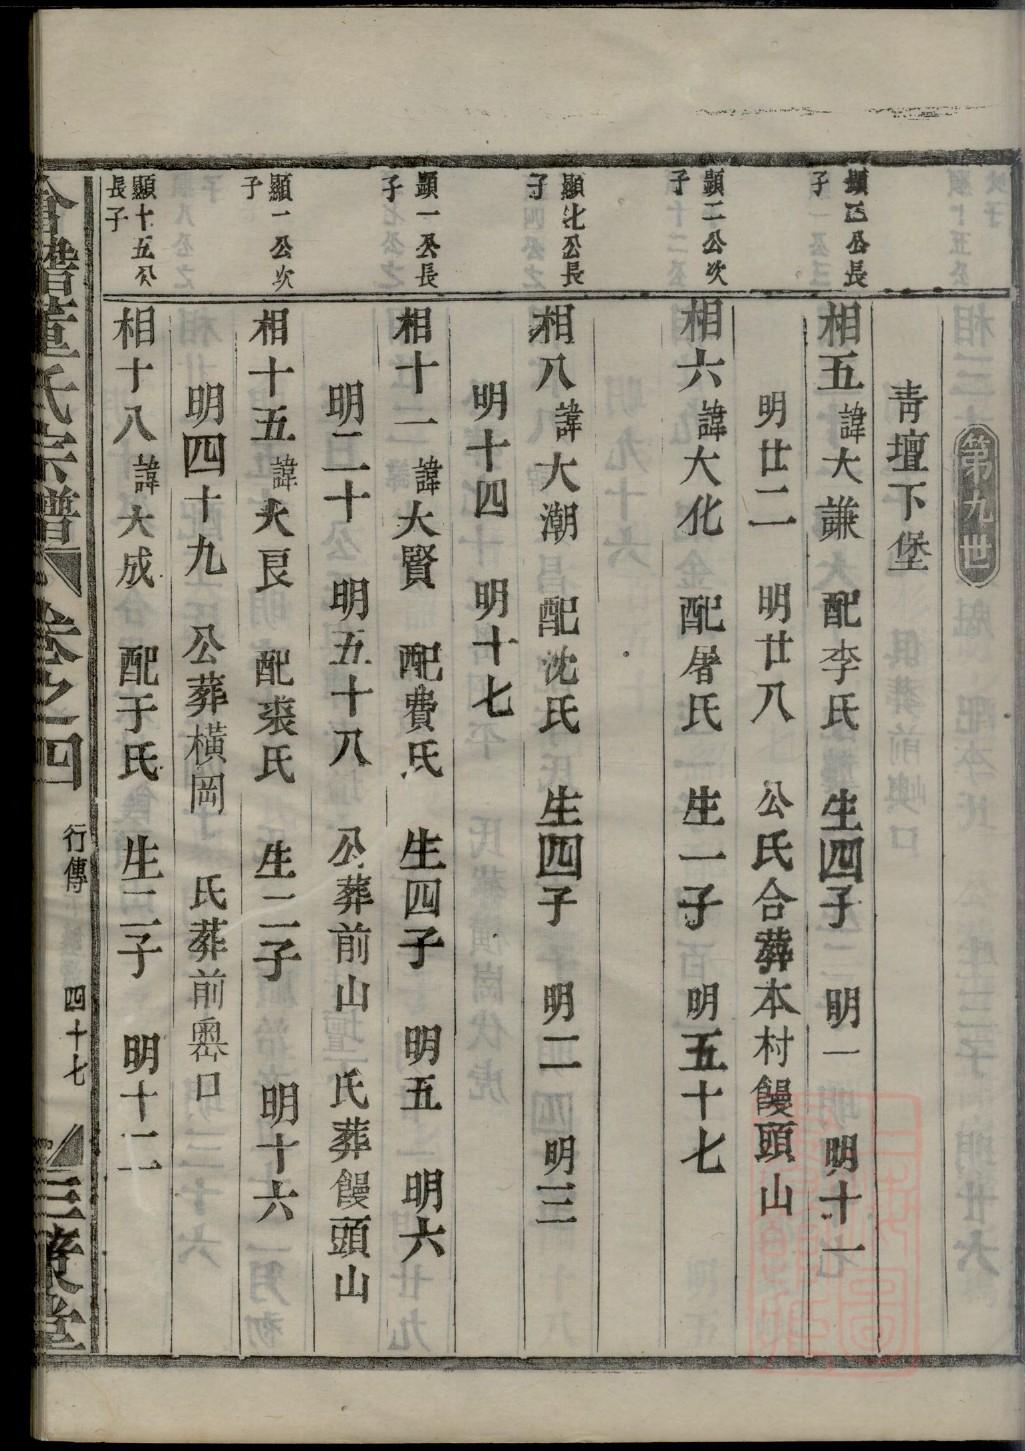 第九世
青壇下堡
顯五公長子
相五諱大謙 配李氏 生四子 明一 明十一
明廿二 明廿八 公氏合葬本村饅頭山
顯二公次子
相六諱大化 配屠氏 生一子 明五十七
顯七公長子
相八諱大潮 配沈氏 生四子 明二 明三
明十四 明十七
顯一公長子
相十一諱大賢 配費氏 生四子 明五 明六
明二十 明五十八 公葬前山 氏葬饅頭山
顯一公次子
相十五諱大艮 配裘氏 生二子 明十六
明四十九 公葬橫岡 氏葬前嶴口
顯十五公長子
相十八諱大成 配于氏 生二子 明十二
會稽董氏宗譜 卷之四 行傳 四十七